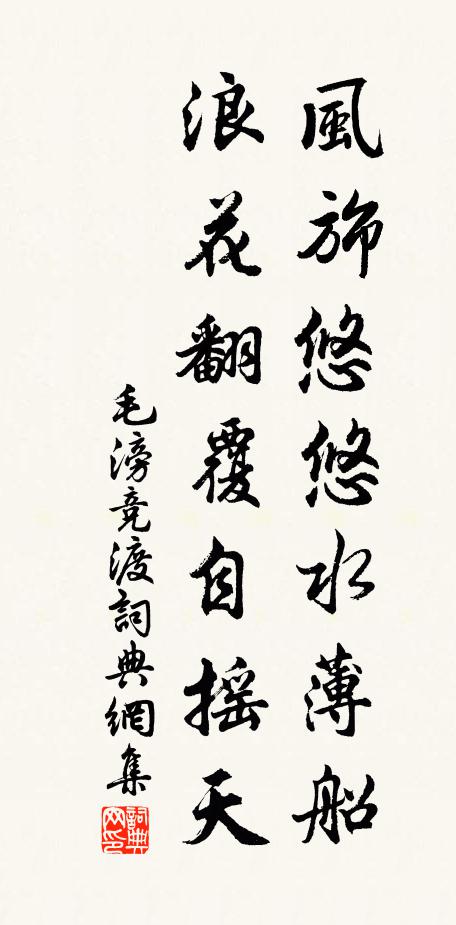 風旆悠悠水薄船
浪花翻覆自摇天
毛滂竞渡詞典網集
詞典网印